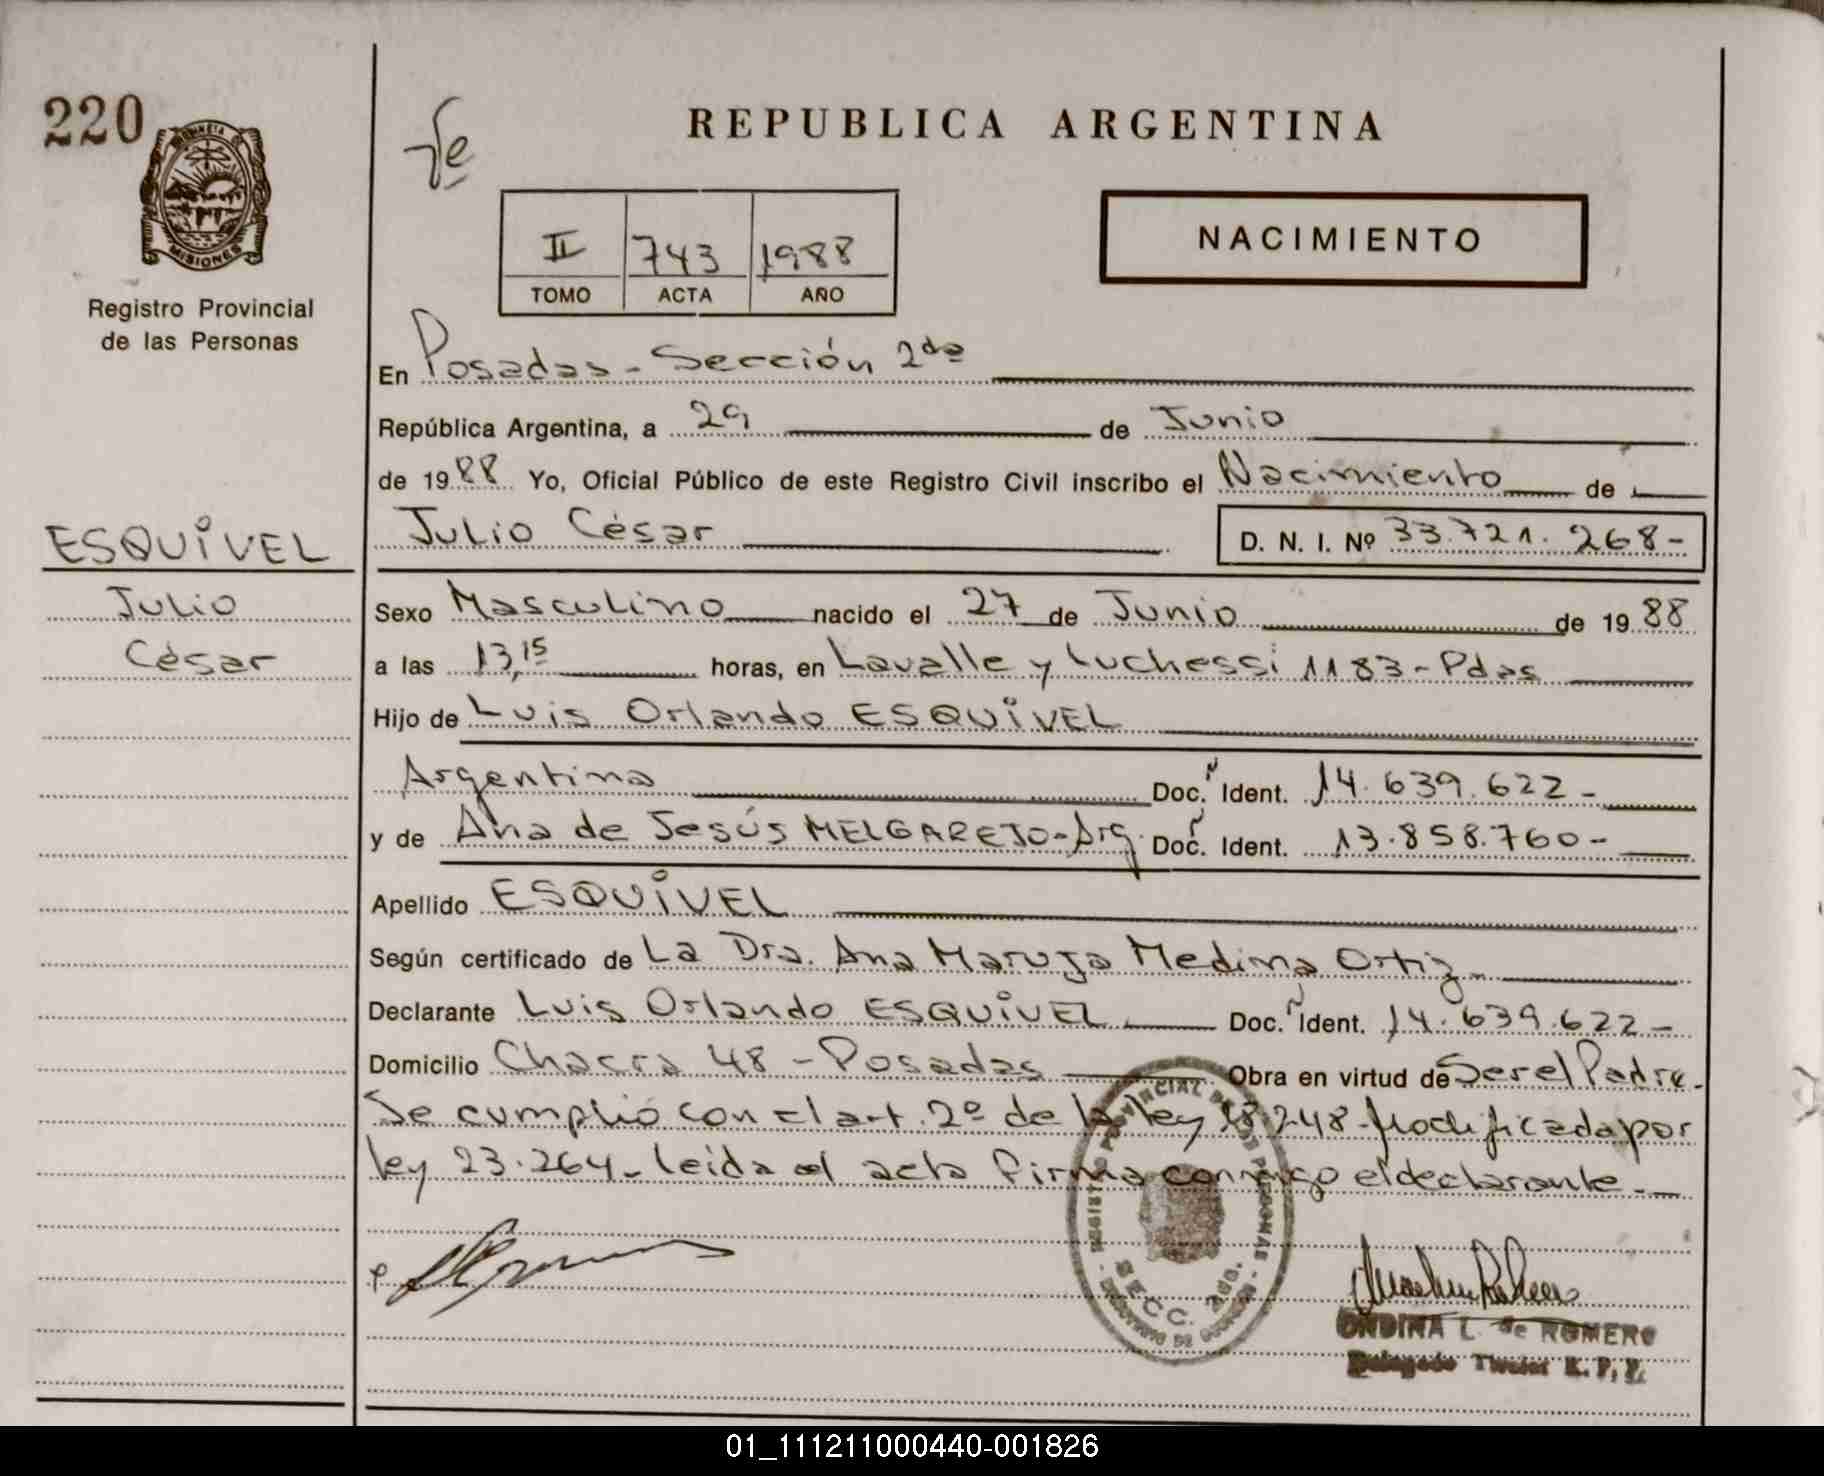 220
REPUBLICA ARGENTINA
MISIONES
Registro Provincial
de las Personas
II 743 1988
TOMO ACTA AÑO
NACIMIENTO
En Posadas - Sección 2da
República Argentina, a 29 de Junio
de 1988 Yo, Oficial Público de este Registro Civil inscribo el Nacimiento de
Julio César D. N. I. Nº 33.721.268-
ESQUIVEL
Julio
César
Sexo Masculino nacido el 27 de Junio de 1988
a las 13,15 horas, en Lavalle y Luchessi 1183 - Pdas
Hijo de Luis Orlando ESQUIVEL
Argentina Doc. Ident. 14.639.622-
y de Ana de Jesús MELGAREJO - Arg. Doc. Ident. 13.858.760-
Apellido ESQUIVEL
Según certificado de La Dra. Ana Maruja Medina Ortiz
Declarante Luis Orlando ESQUIVEL Doc. Ident. 14.639.622-
Domicilio Chacra 48 - Posadas Obra en virtud de Ser el Padre.
Se cumplió con el art. 2º de la ley 18.248 - Modificada por
ley 23.264 - leída el acta firma conmigo el declarante.
SECC. 2da.
ONDINA L. de ROMERO
Delegado Titular R. P. P.
01_111211000440-001826